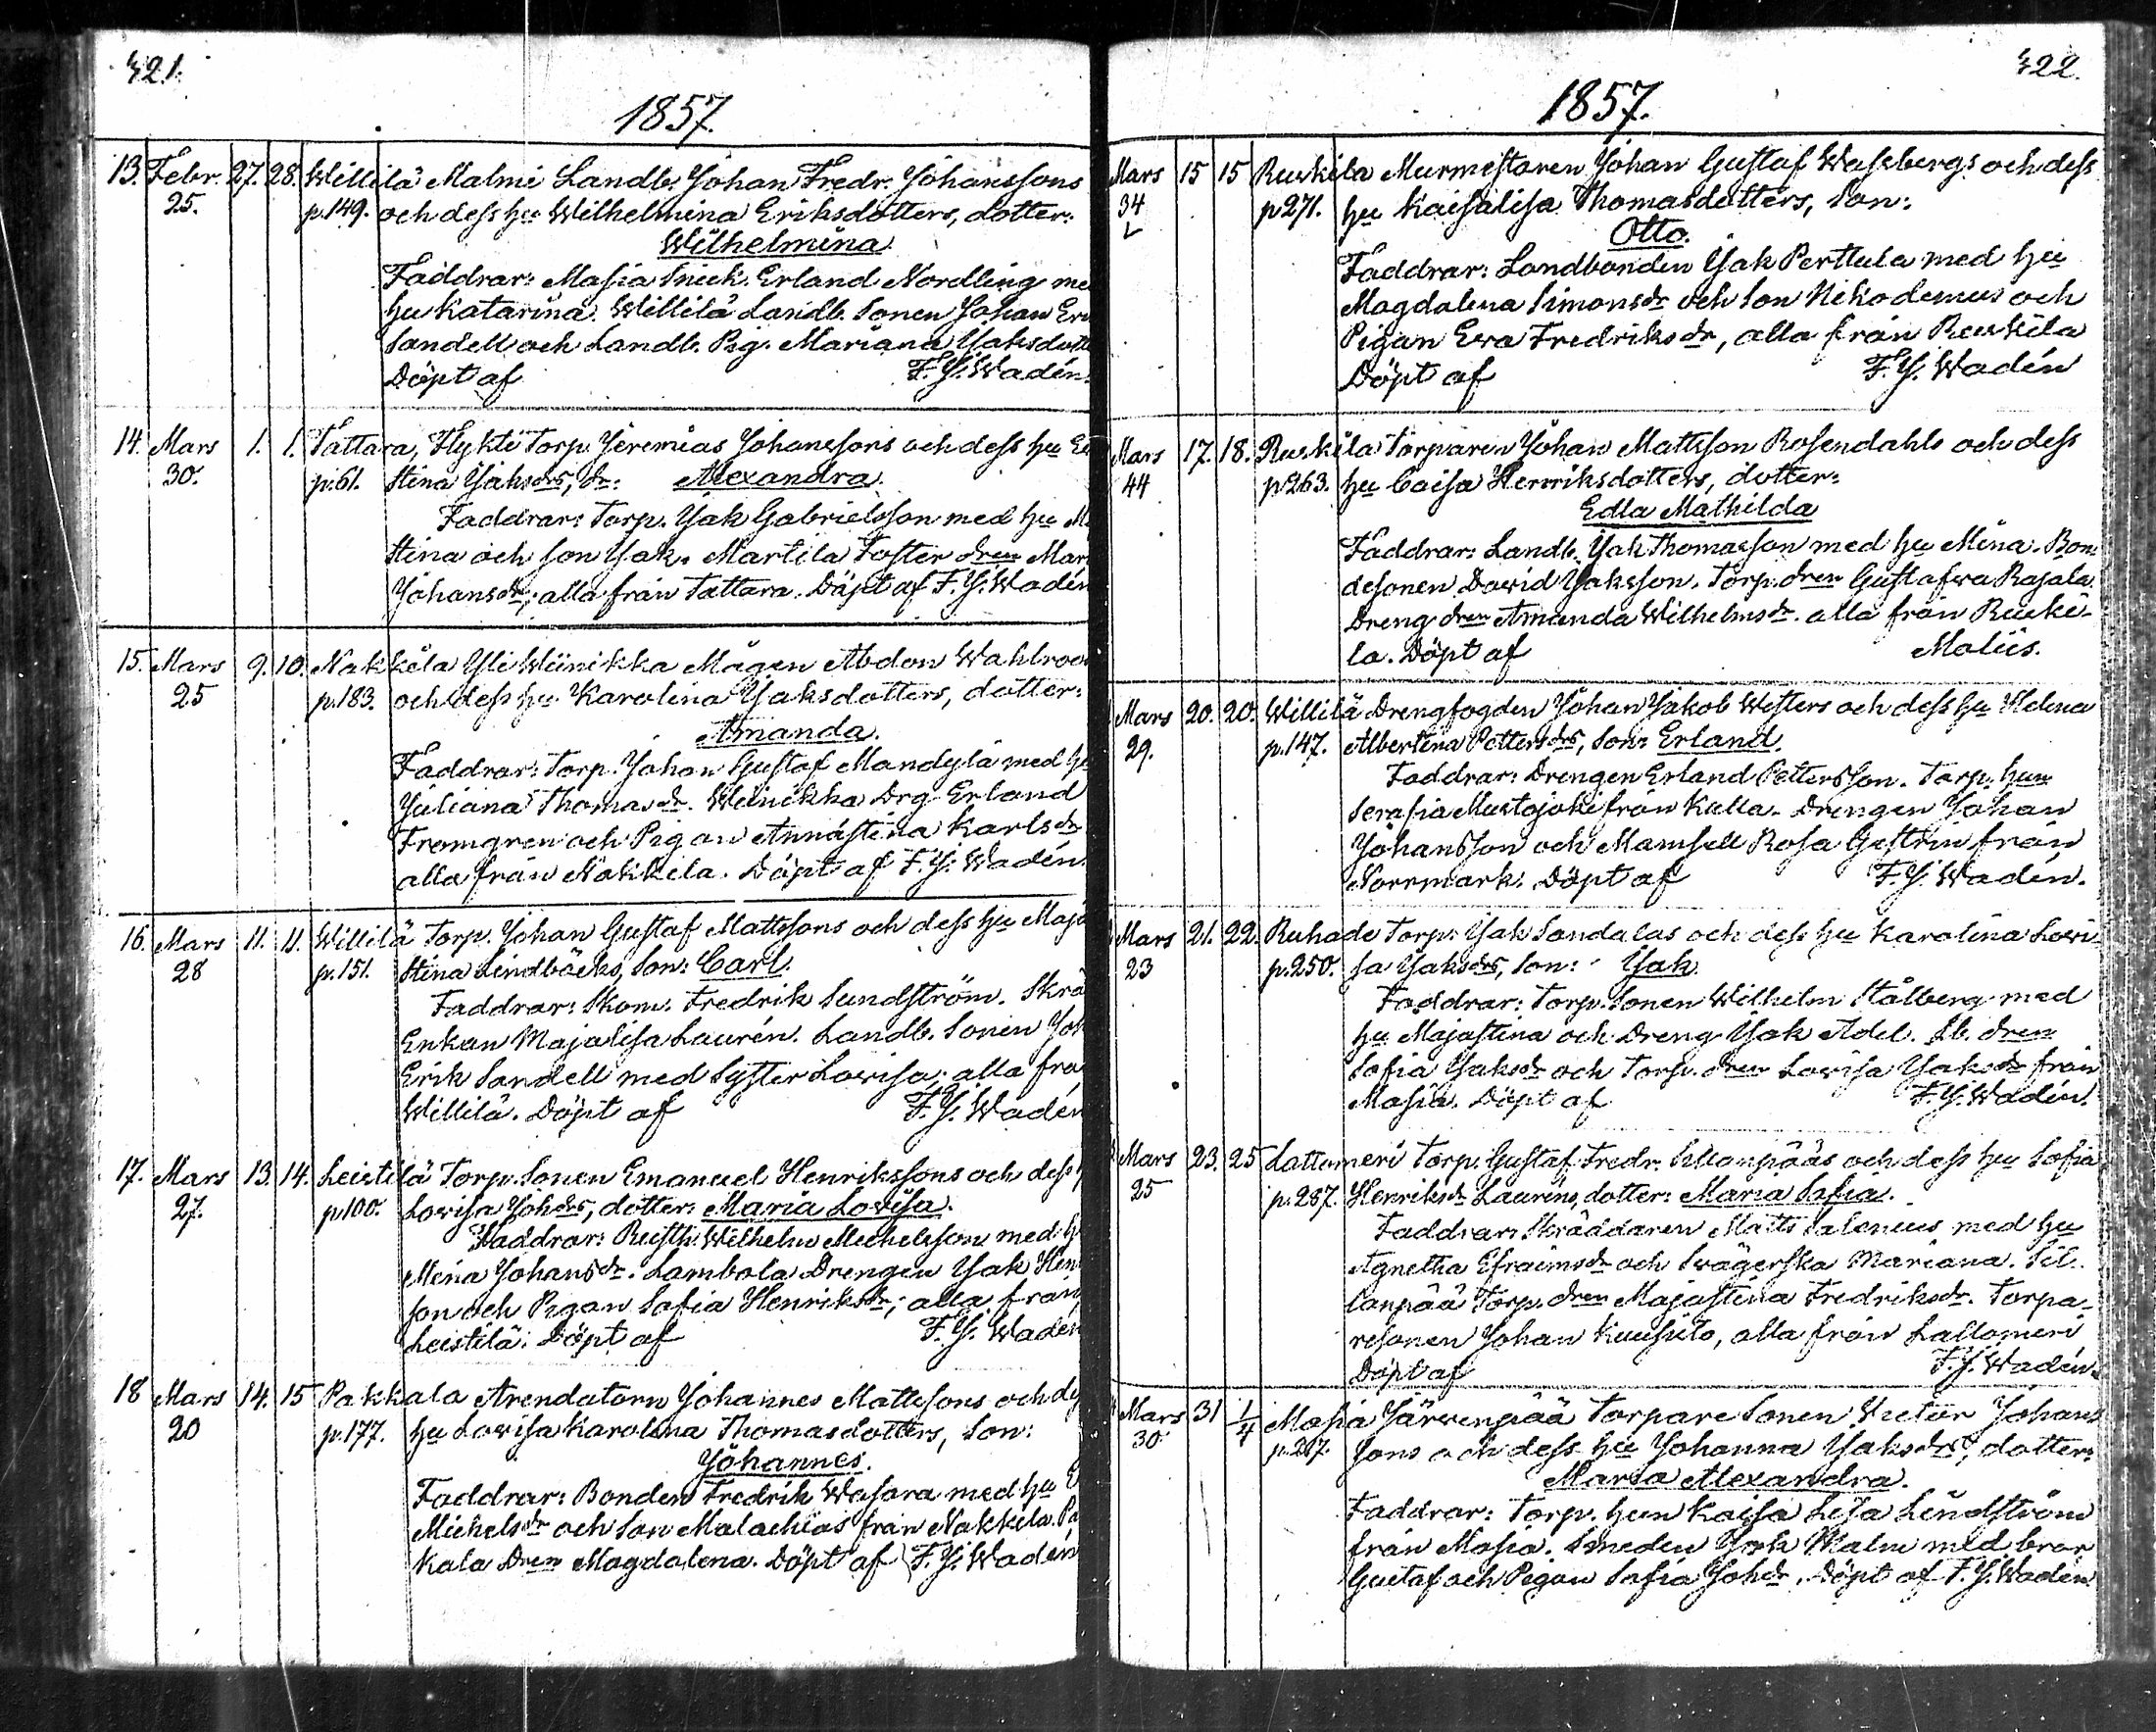 421.
1857.
13. Febr. 27. 28. Willilä Malmi Landb. Johan Fredr. Johanssons
25. p.149. och dess hu Wilhelmina Eriksdotters, dotter:
Wilhelmina
Faddrar: Masia Snick. Erland Nordling me
hu Katarina. Willilä Landb. Sonen Johan Eri
Sandell och Landb. Pig. Mariana Jaksdott
Döpt af F. J. Wadén.
14. Mars 1. 1. Tattara, Flykti Torp. Jeremias Johanssons och dess hu
30. p.61. Stina Jaksdrs, dr: Alexandra.
Faddrar: Torp. Jak Gabrielsson med hu
Stina och son Jak. Martila Foster dren Mar
Johansdr; alla från Tattara. Döpt af F. J. Wadén
15. Mars 9. 10. Nakkila Yli Wiinikka Mågen Abdon Wahlroo
25 p.183. och dess hu Karolina Jaksdotters, dotter:
Amanda.
Faddrar: Torp. Johan Gustaf Mandylä med hu
Juliana Thomasdr. Weinikka Drg. Erland
Fromgren och Pigan Annastina Karlsdr
alla från Nakkila. Döpt af F. J. Wadén.
16. Mars 11. 11. Willilä Torp. Johan Gustaf Mattssons och dess hu Maja
28 p.151. Stina Lindbäcks, Son: Carl.
Faddrar: Skom. Fredrik Sundström. Skrä
Enkan Majalisa Laurén. Landb. Sonen Joh
Erik Sandell med Syster Lovisa; alla frå
Willilä. Döpt af F. J. Wadén
17. Mars 13. 14. Leistilä Torp. Sonen Emanuel Henrikssons och dess h
27. p100. Lovisa Johdrs, dotter: Maria Lovisa.
Faddrar: Rusth. Wilhelm Michelsson med h
Mina Johansdr. Lambola Drengen Jak Hen
son och Pigan Sofia Henriksdr; alla från
Leistilä. Döpt af F. J. Wadén
18 Mars 14. 15 Pakkala Arendatorn Johannes Mattssons och d
20 p.177. hu Lovisa Karolina Thomasdotters, Son:
Johannes.
Faddrar: Bonden Fredrik Wasara med hu
Michelsdr och Son Malachias från Nakkila. Pa
kala Dren Magdalena. Döpt af F. J. Wadén
422.
1857.
Mars 15 15 Ruskila Murmestaren Johan Gustaf Wassbergs och dess
34 p271. hu Kaisalisa Thomasdotters, Son:
Otto.
Faddrar: Landbonden Jak Perttula med hu
Magdalena Simonsdr och Son Nikodemus och
Pigan Eva Fredriksdr, alla från Ruskila
Döpt af F. J. Wadén
Mars 17. 18. Ruskila Torparen Johan Mattsson Rosendahls och dess
44 p263. hu Caisa Henriksdotters, dotter:
Edla Mathilda
Faddrar: Landb. Jak Thomasson med hu Mina. Bon-
desonen David Jaksson. Torp. dren Gustafva Rajala.
Dreng dren Amanda Wilhelmsdr. alla från Ruski-
la. Döpt af Moliis.
Mars 20. 20. Willilä Drengfogden Johan Jakob Westers och dess hu Helena
29. p.147. Albertina Pettersdrs, Son: Erland.
Faddrar: Drengen Erland Pettersson. Torp. hun
Serafia Mustajoki från Kulla. Drengen Johan
Johansson och Mamsell Rosa Gestrin från
Norrmark. Döpt af F. J. Wadén.
Mars 21. 22. Ruhade Torp. Jak Sandalas och dess hu Karolina Lovi-
23 p.250. sa Jaksdrs, Son: Jak.
Faddrar: Torp. Sonen Wilhelm Stålberg med
hu Majastina och Dreng Jak Adel. Lb. dren
Sofia Jaksdr och Torp. dren Lovisa Jaksdr från
Masia. Döpt af F. J. Wadén.
Mars 23. 25 Lattomeri Torp. Gustaf Fredr. Sillanpääs och dess hu Sofia
25 p.287. Henriksdr Lauréns, dotter: Maria Sofia.
Faddrar: Skräddaren Matts Salenius med hu
Agnetha Efraimsdr och Svägerska Mariana. Sil-
lanpää Torp. dren Majastina Fredriksdr. Torpa-
resonen Johan Kuusisto, alla från Lattomeri
Döpt af F. J. Wadén.
Mars 31 1/4 Masia Järvenpää Torpare Sonen Victor Johans
30. p.217. sons och dess hu Johanna Jaksdrs, dotter:
Maria Alexandra.
Faddrar: Torp. hun Kaisa Lisa Lindström
från Masia. Smeden Jak Malm med bror
Gustaf och Pigan Sofia Johdr. Döpt af F. J. Wadén